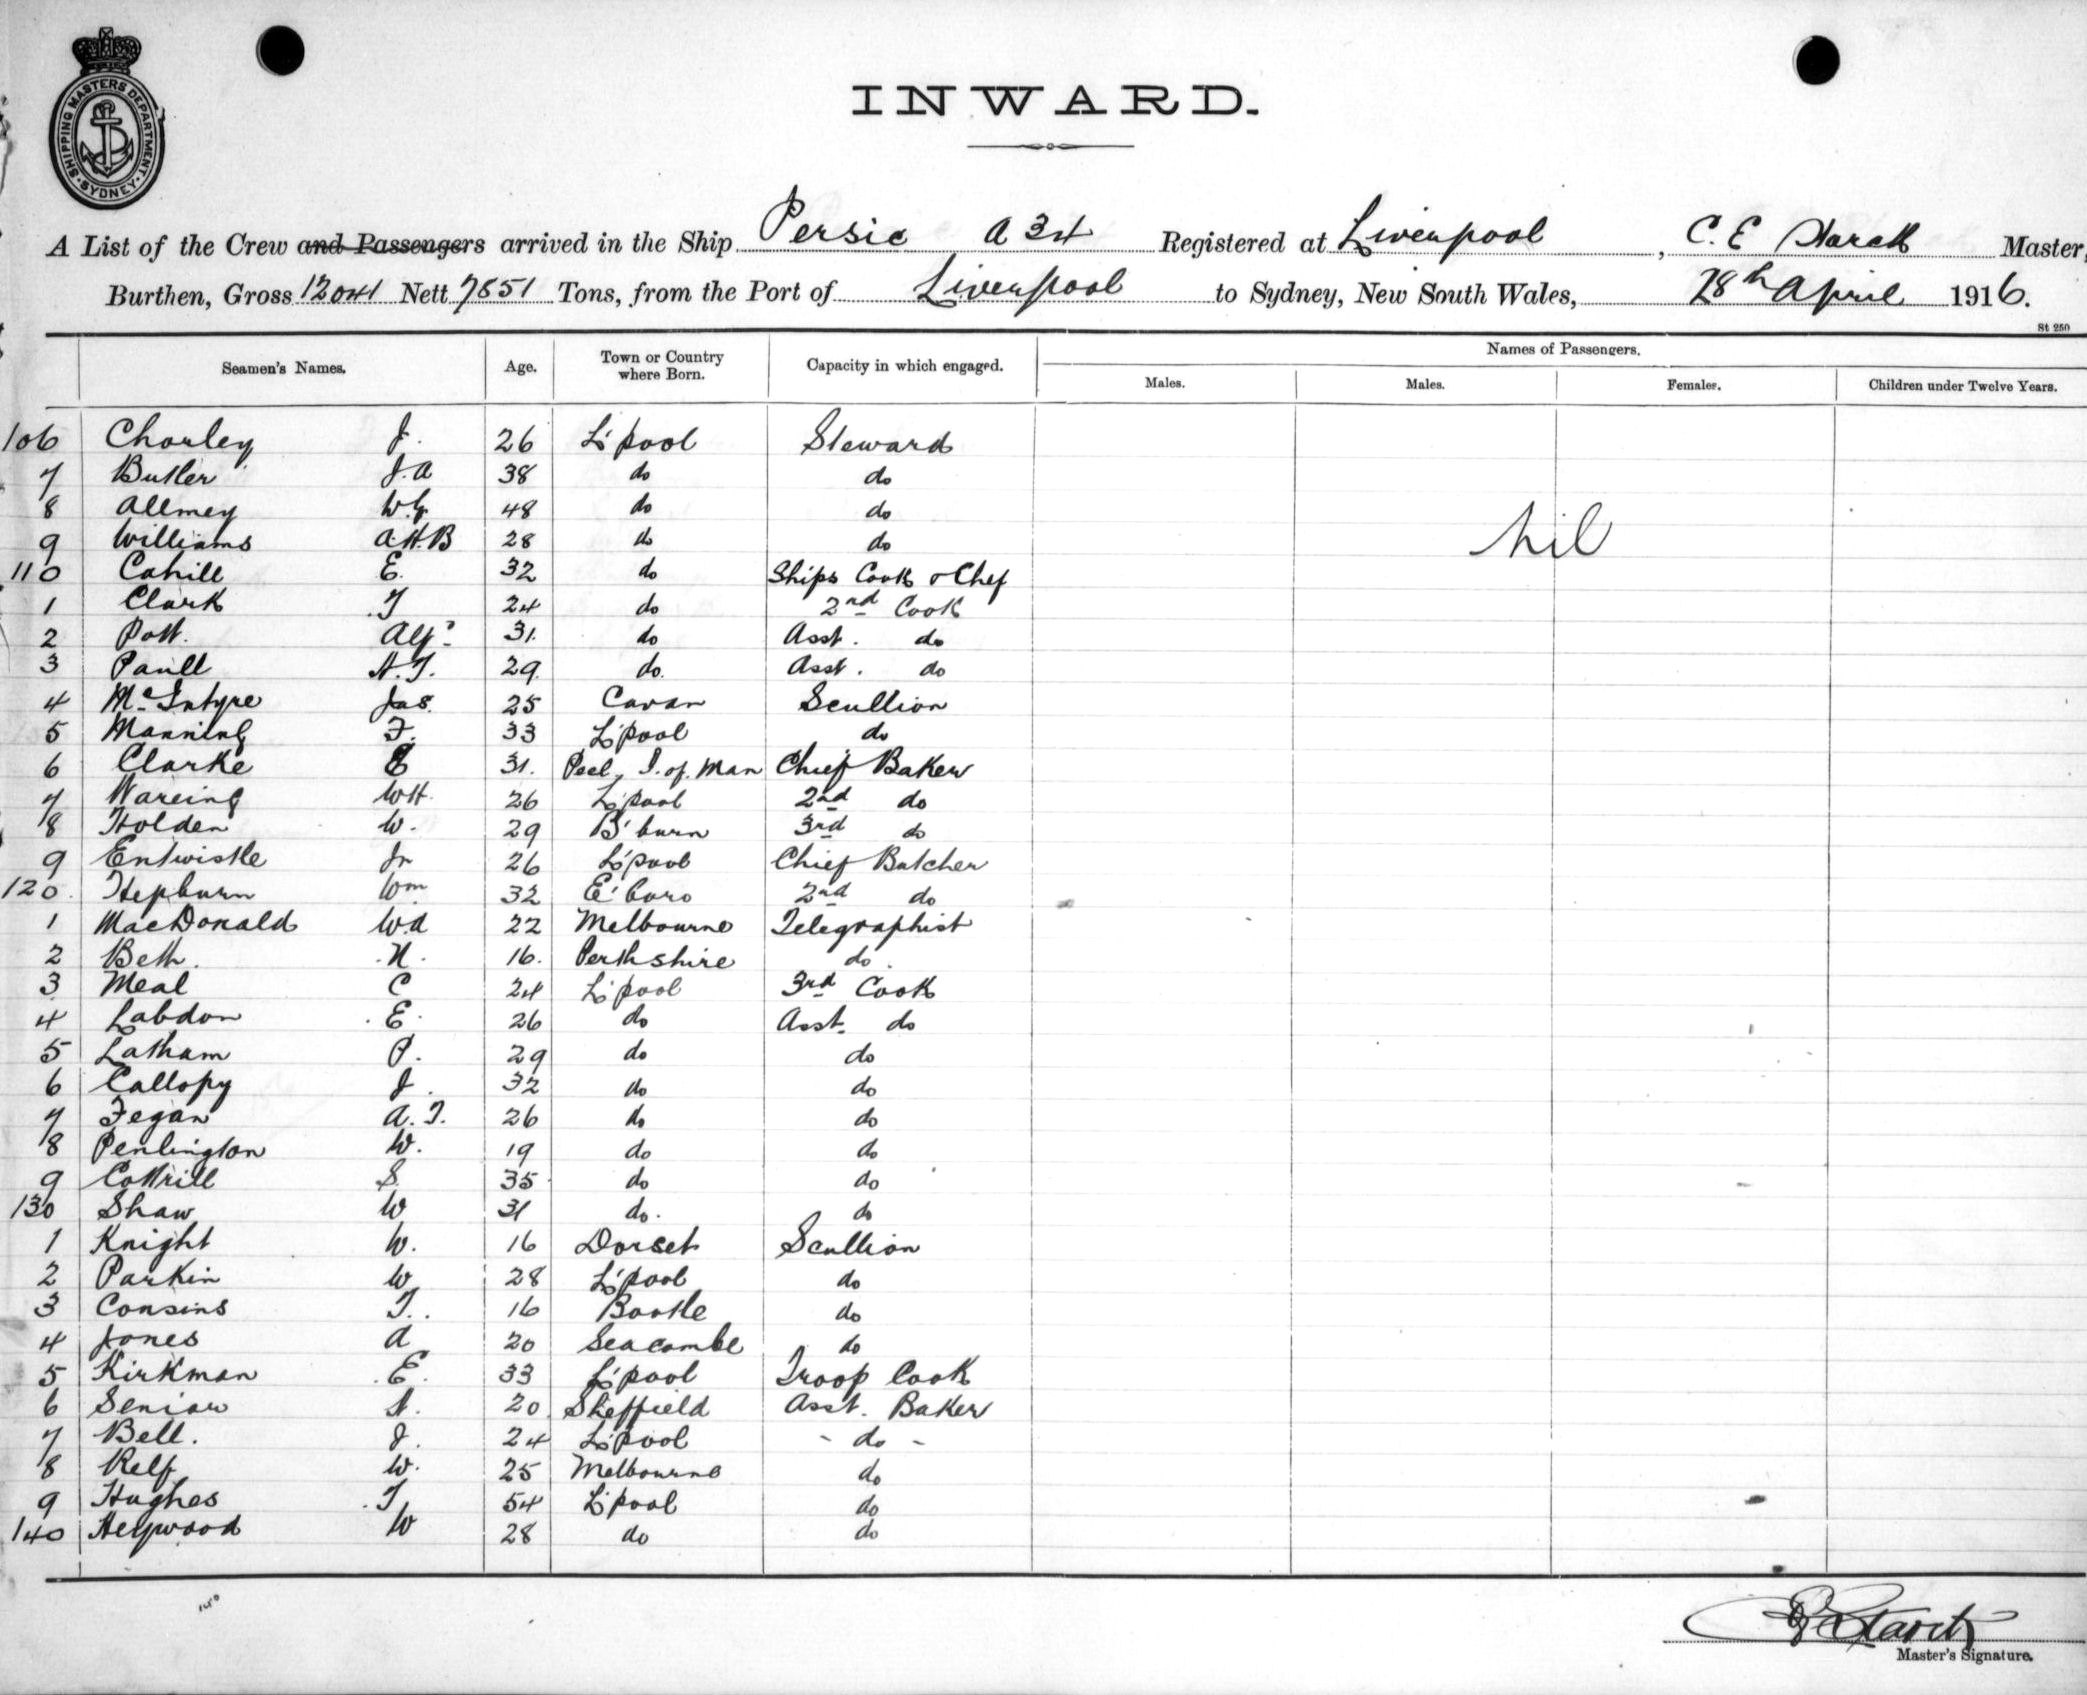 SHIPPING MASTERS DEPARTMENT · SYDNEY ·
INWARD.
A List of the Crew and Passengers arrived in the Ship Persic A34 Registered at Liverpool, C. E Starck Master,
Burthen, Gross 12041 Nett 7851 Tons, from the Port of Liverpool to Sydney, New South Wales, 28th April 1916.
St 250
Seamen's Names. Age. Town or Country where Born. Capacity in which engaged. Names of Passengers.
Males. Males. Females. Children under Twelve Years.
106 Chorley J. 26 L'pool Steward
7 Butler J.A 38 do do
8 Allmey W.G. 48 do do
nil
9 Williams A.H.B 28 do do
110 Cahill E. 32 do Ships Cook & Chef
1 Clark T 24 do 2nd Cook
2 Pott. Alf. 31. do Asst. do
3 Paull A.T. 29. do. Asst. do
4 McIntyre Jas. 25 Cavan Scullion
5 Manning F. 33 L'pool do
6 Clarke E 31. Peel, I. of. Man Chief Baker
7 Wareing WH. 26 L'pool 2nd do
8 Holden W. 29 B'burn 3rd do
9 Entwistle Jn 26 L'pool Chief Butcher
120. Hepburn Wm 32 E'boro 2nd do
1 MacDonald W.A 22 Melbourne Telegraphist
2 Beth. N. 16. Perthshire do.
3 Meal C 24 L'pool 3rd Cook
4 Labdon E. 26 do Asst. do
5 Latham P. 29 do do
6 Callopy J. 32 do do
7 Fegan A.T. 26 do do
8 Penlington W. 19 do do
9 Cottrill S. 35 do do
130 Shaw W 31 do. do
1 Knight W. 16 Dorset Scullion
2 Parkin W 28 L'pool do
3 Cousins T.. 16 Bootle do
4 Jones A 20 Seacombe do
5 Kirkman E. 33 L'pool Troop Cook
6 Senior A. 20 Sheffield Asst. Baker
7 Bell. J. 24 L'pool - do -
8 Relf W. 25 Melbourne do
9 Hughes T 54 L'pool do
140 Heywood W 28 do do
140
Master's Signature.